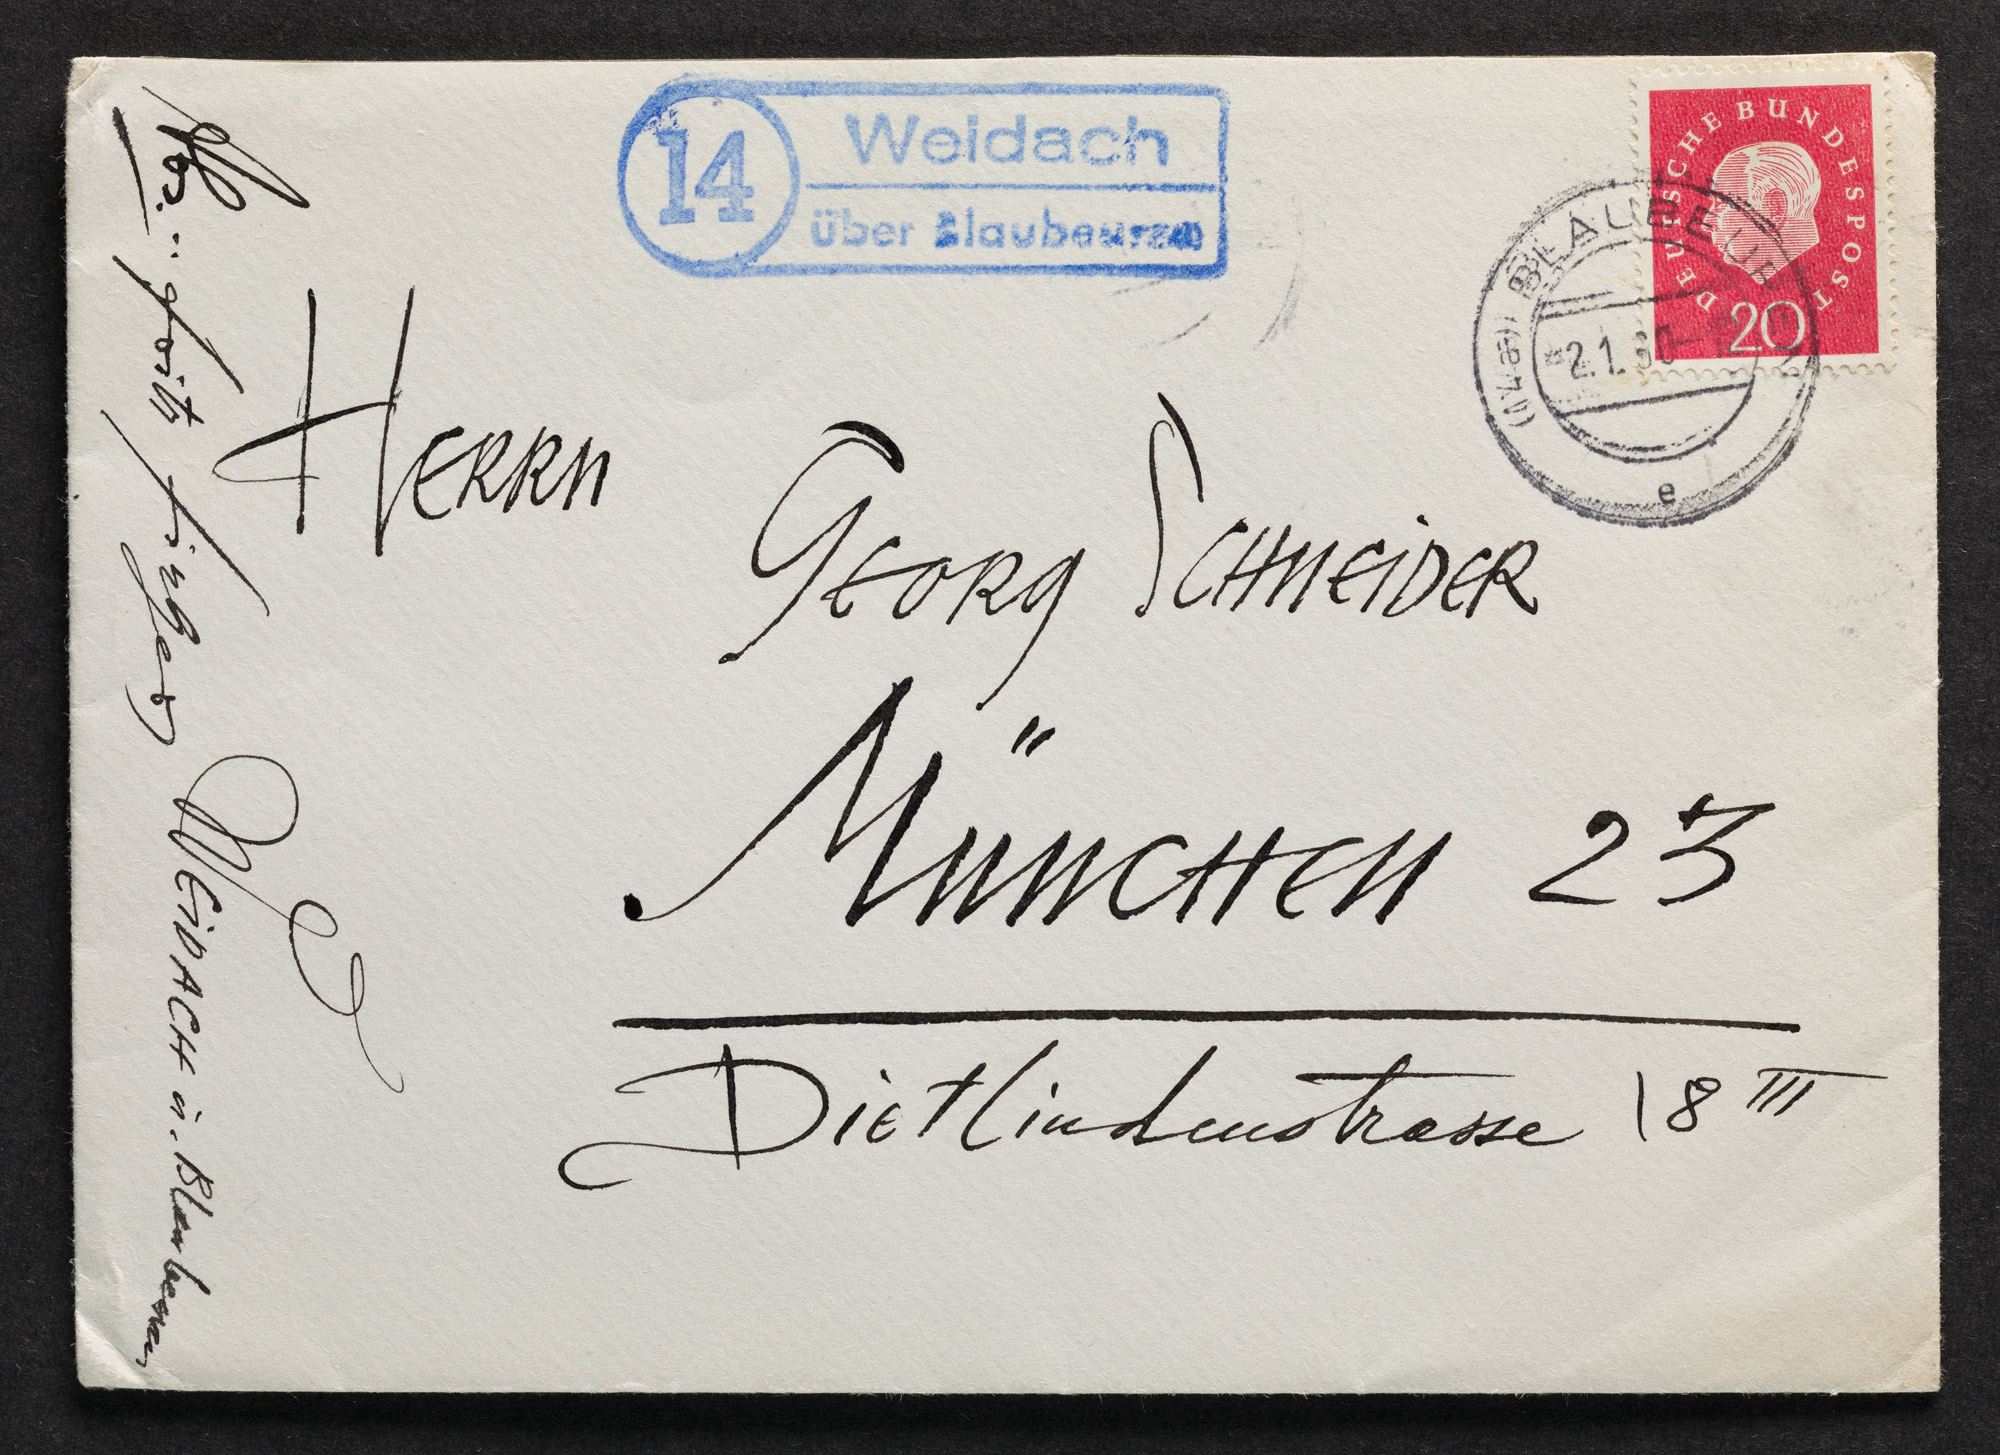 14
Weidach
über Blaubeuren
DEUTSCHE BUNDESPOST
20
(14a) BLAUBEUREN
2.1.60
e
HERRN
GEORG SCHNEIDER
MÜNCHEN 23
Dietlindenstrasse 18 III
Abs.: WEIDACH ü. Blaubeuren